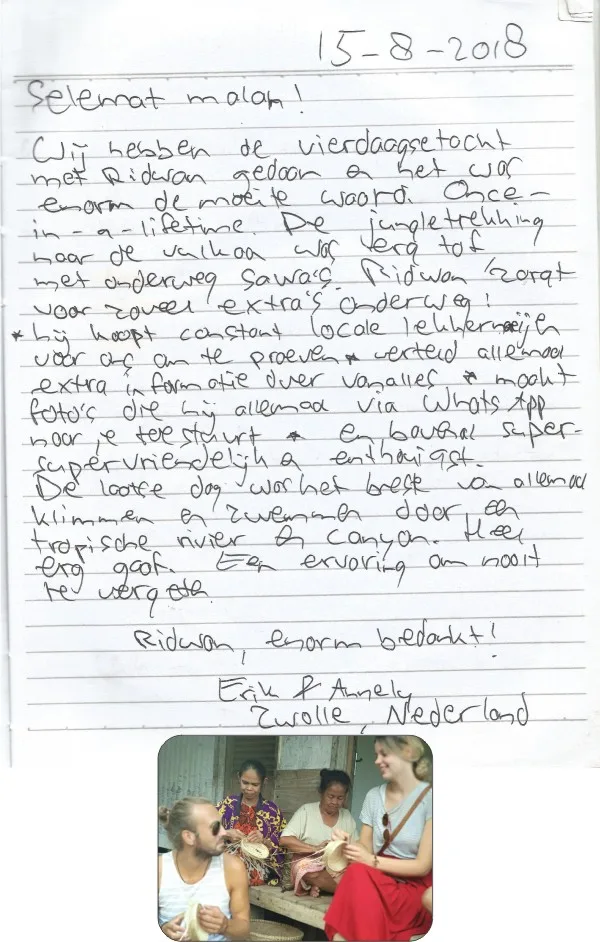 15-8-2018
Selemat malam!
Wij hebben de vierdaagse tocht
met Ridwan gedaan en het was
enorm de moeite waard. Once-
in-a-lifetime. De jungletrekking
naar de vulkaan was erg tof
met onderweg sawa's. Ridwan zorgt
voor zoveel extra's onderweg!
* hij koopt constant locale lekkernijen
voor ons om te proeven * verteld allemaal
extra informatie over vanalles, * maakt
foto's die hij allemaal via WhatsApp
naar je toe stuurt * en bovenal super-
supervriendelijk en enthousiast.
De laatste dag was het beste van allemaal
klimmen en zwemmen door een
tropische rivier en canyon. Heel
erg gaaf. Een ervaring om nooit
te vergeten.
Ridwan, enorm bedankt!
Erik & Annely
Zwolle, Nederland